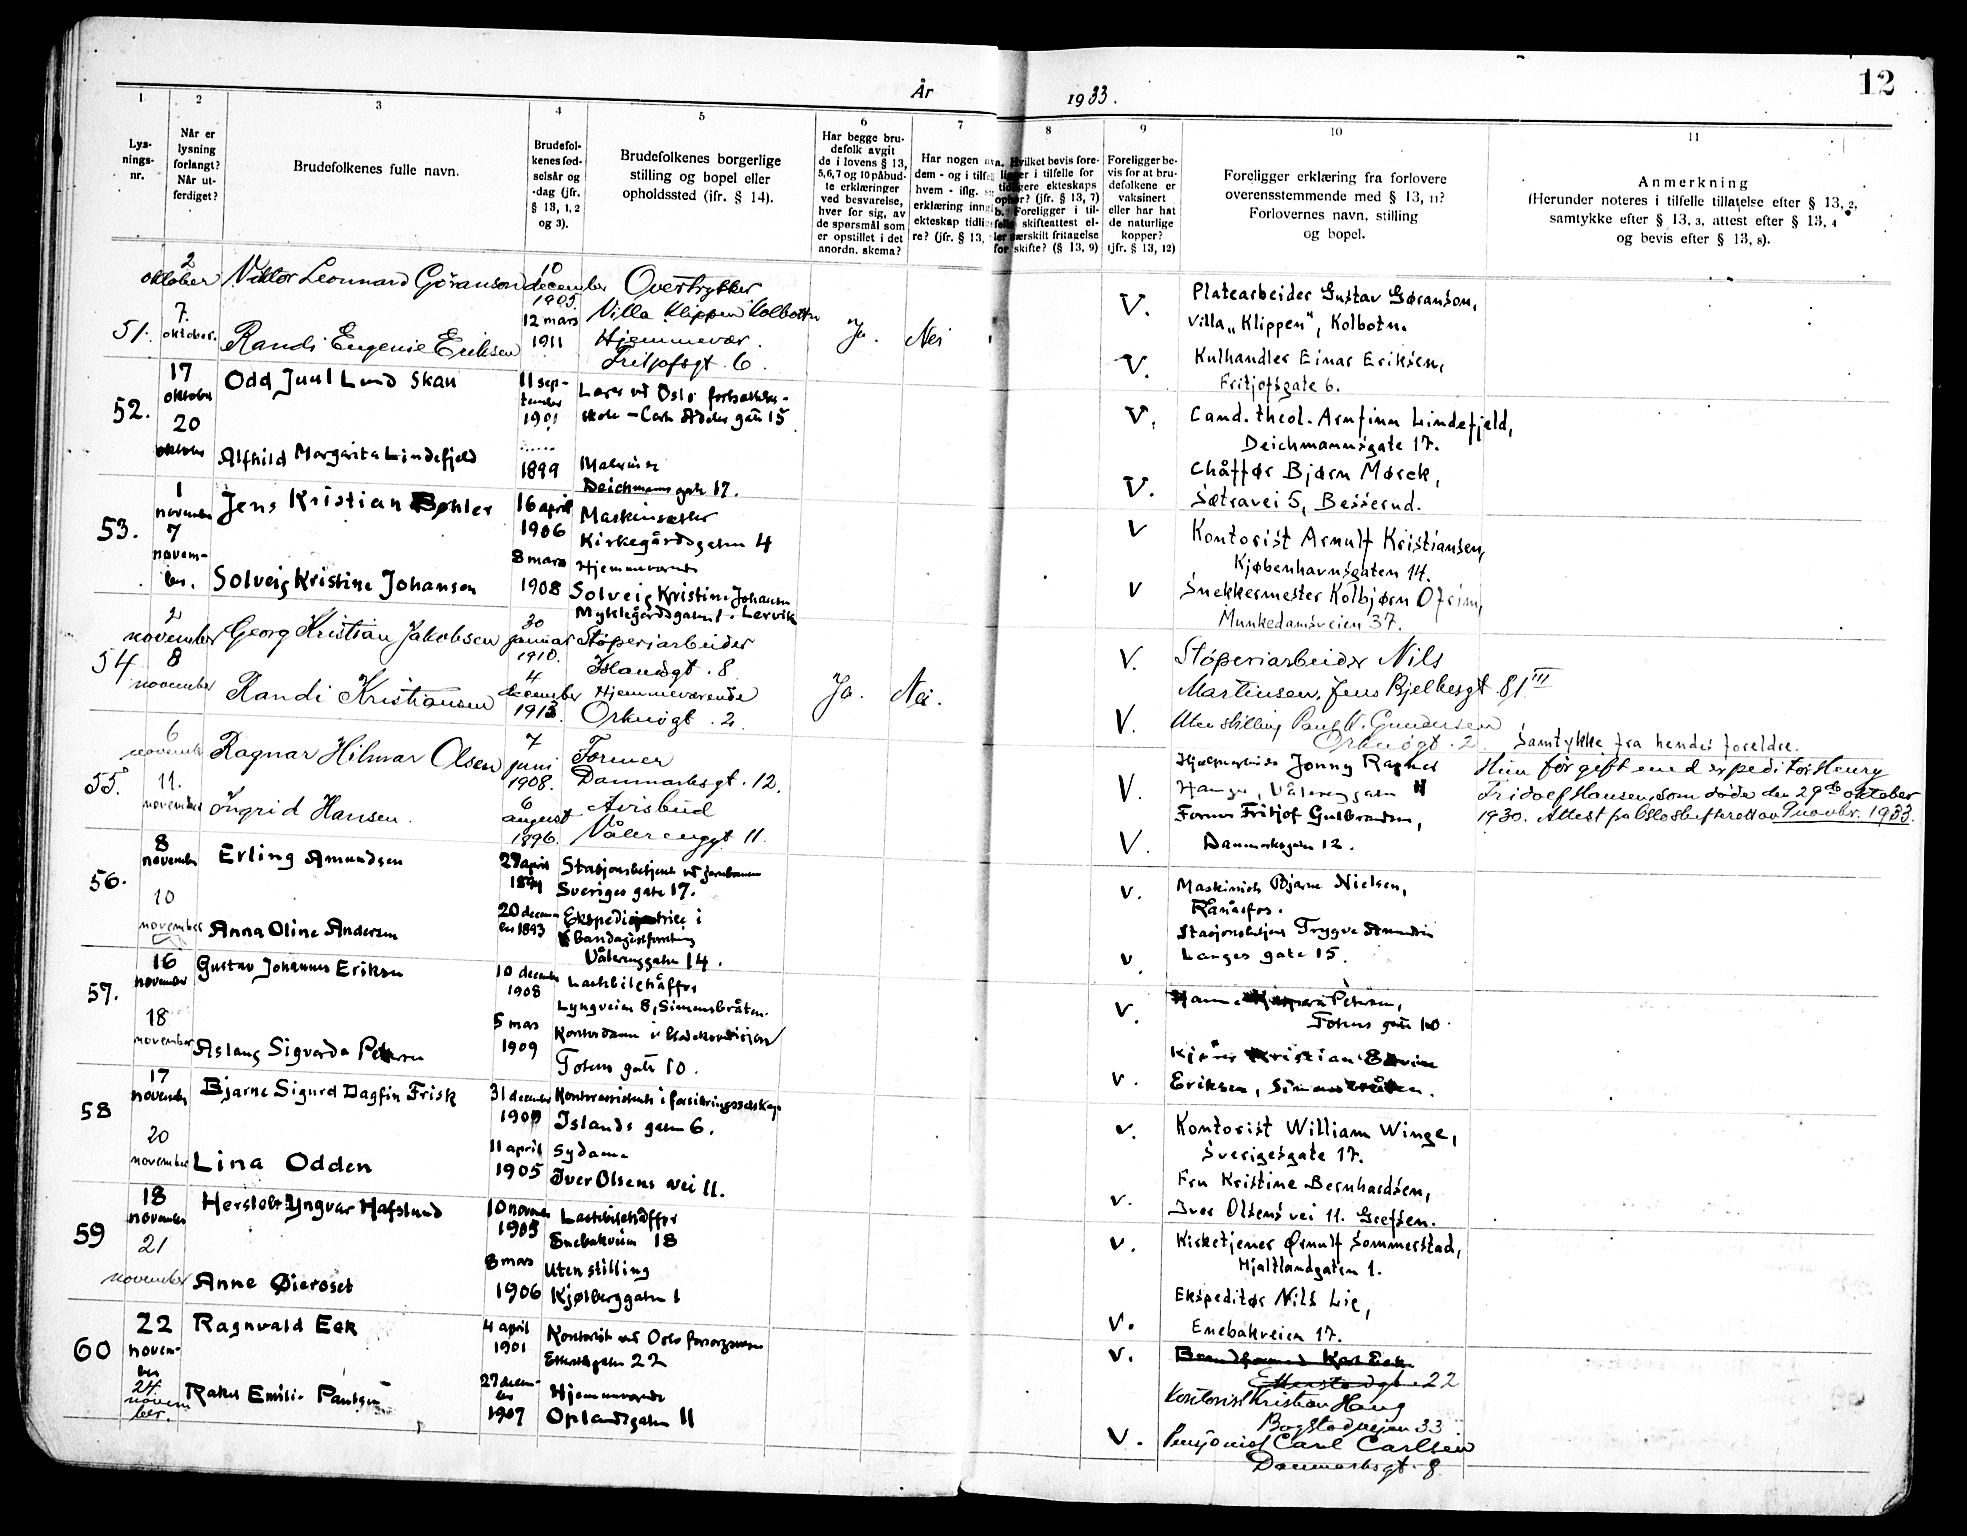 12
År 1933.
1 2 3 4 5 6 7 8 9 10 11
Lys-
nings-
nr.
Når er
lysning
forlangt?
Når ut-
ferdiget?
Brudefolkenes fulle navn.
Brudefol-
kenes fød-
selsår og
-dag (jfr.
§ 13, 1, 2
og 3).
Brudefolkenes borgerlige
stilling og bopel eller
opholdssted (ifr. § 14).
Har begge bru-
defolk avgit
de i lovens § 13,
5,6,7 og 10 påbud-
te erklæringer
ved besvarelse,
hver for sig, av
de spørsmål som
er opstillet i det
anordn. skema?
Har nogen av
dem - og i tilfelle
hvem - iflg.
erklæring inngått
ekteskap tidlige-
re? (jfr. § 13,
a. Hvilket bevis fore-
ligger i tilfelle for
tidligere ekteskaps
ophør? (jfr. § 13, 7)
b. Foreligger i til-
felle skifteattest el-
ler særskilt fritagelse
for skifte? (§ 13, 9)
Foreligger be-
vis for at bru-
defolkene er
vaksinert
eller har hat
de naturlige
kopper?
(jfr. § 13, 12)
Foreligger erklæring fra forlovere
overensstemmende med § 13, 11?
Forlovernes navn, stilling
og bopel.
Anmerkning
(Herunder noteres i tilfelle tillatelse efter § 13, 2,
samtykke efter § 13, 3, attest efter § 13, 4
og bevis efter § 13, 8).
51.
2
oktober
7.
oktober.
Viktor Leonnard Göranson
10
december
1905
Overtrykker
Villa Klippen Kolbotn
Randi Eugenie Eriksen
12 mars
1911
Hjemmevær.
Fritjofsgt. 6.
Ja. Nei
V. Platearbeider Gustav Gøranson,
Villa „Klippen", Kolbotn.
V. Kulhandler Einar Eriksen,
Fritjofsgate 6.
52.
17
oktober
20
oktober
Odd Juul Lund Skau
11 sep-
tember
1901
Lærer ved Oslo fortsettelses-
skole - Carl Adelers gate 15
Alfhild Margarita Lindefjeld
1899
Malerinne
Deichmansgate 17.
V. Cand. theol. Arnfinn Lindefjeld,
Deichmannsgate 17.
V. Chåffør Bjørn Mørck,
Sætravei 5, Besserud.
53.
1
november
7
novem-
ber.
Jens Kristian Bøhler
16 april
1906
Maskinsetter
Kirkegårdsgaten 4
Solveig Kristine Johansen
8 mars
1908
Hjemmeværende
Solveig Kristine Johansen
Myklegårdsgaten 1. Lervik
V Kontorist Arnulf Kristiansen,
Kjøbenhavnsgaten 14.
V Snekkermester Kolbjørn Ofrim,
Munkedamsveien 37.
54
2
november
8
november
Georg Kristian Jakobsen
30
januar
1910.
Støperiarbeider
Islandsgt. 8
Randi Kristiansen
4
december
1913.
Hjemmeværende
Orknøgt. 2.
Ja. Nei.
V. Støperiarbeider Nils
Martinsen, Jens Bjelkesgt 81 III
V. Uten stilling Paul V. Gundersen
Orknøgt. 2.
Samtykke fra hendes foreldre.
55.
6
november
11.
november
Ragnar Hilmar Olsen
7
juni
1908.
Former
Danmarksgt. 12.
Ingrid Hansen.
6
august
1896.
Avisbud
Vålerenggt 11.
V. Hjelpearbeider Jonny Ragnar
Hansen, Vålerenggaten 11
V. Former Fritjof Gulbrandsen,
Danmarksgaten 12.
Hun før gift med ekspeditør Henry
Fridolf Hansen, som døde den 29de oktober
1930. Attest fra Oslo skifterett av 9 novbr. 1933.
56.
8
november
10
november
Erling Amundsen
29 april
1894
Stasjonsbetjent ved jernbanen
Sveriges gate 17.
Anna Oline Andersen
20 decem-
ber 1893
Ekspeditrice i
Bandagistforretning
Vålerenggaten 14.
V. Maskinist Bjarne Nielsen,
Rånåsfos.
Stasjonsbetjent Trygve Amundsen
V. Langes gate 15.
57.
16
november
18
november
Gustav Johannes Eriksen
10 december
1908
Lastebilchåffør
Lyngveien 8, Simensbråten.
Aslaug Sigvarda Petersen
5 mars
1909
Kontordame i
Totens gate 10.
V. Petersen,
Totens gate 10.
V. Kjører Kristian Edvin
Eriksen, Simensbråten.
58
17
november
20
november
Bjarne Sigurd Dagfin Frisk
31 december
1900
Kontorassistent i forsikringsselskap
Islands gaten 6.
Lina Odden
11 april
1905
Sydame
Iver Olsens vei 11.
V. Kontorist William Winge,
Sverigesgate 17.
V. Fru Kristine Bernhardsen,
Iver Olsens vei 11. Grefsen.
59
18
november
21
november
Herslob Yngvar Hafslund
10 november
1905
Lastebilchåffør
Enebakveien 18
Anne Øierøset
8 mars
1906
Uten stilling
Kjølberggaten 1
V. Kirketjener Ørnulf Sommerstad,
Hjaltlandgaten 1.
V. Ekspeditør Nils Lie,
Enebakveien 17.
60
22
novem-
ber
24.
novem
ber.
Ragnvald Eek
4 april
1901
Kontorist ved Oslo forsorgsvesen
Etterstadgaten 22
Rakel Emilie Paulsen
27 decem-
ber
1907
Hjemmeværende
Oplandsgaten 11
V. Karl Eek
Etterstadgt. 22
Kontorist Kristian Haug
Bogstadveien 33
V. Pensjonist Carl Carlsen
Danmarksgt. 8